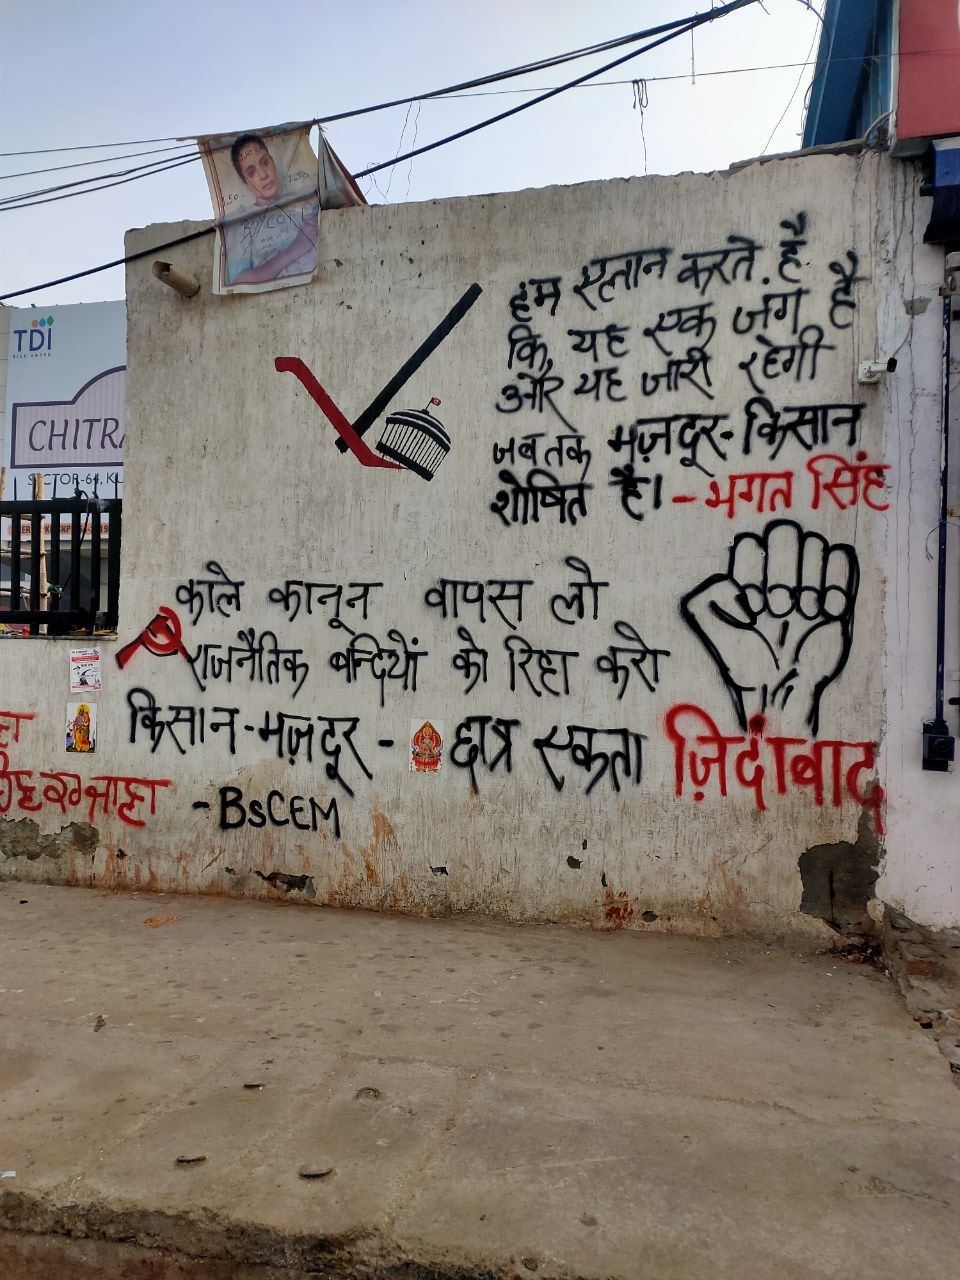 BOYCOTT
TDI
CHITRA
SECTOR-64, KU
हम एलान करते है
कि, यह एक जंग है
और यह जारी रहेगी
जब तक मज़दूर-किसान
शोषित है। - भगत सिंह
काले कानून वापस लो
राजनैतिक बन्दियों को रिहा करो
किसान-मज़दूर - छात्र एकता ज़िंदाबाद
- BsCEM